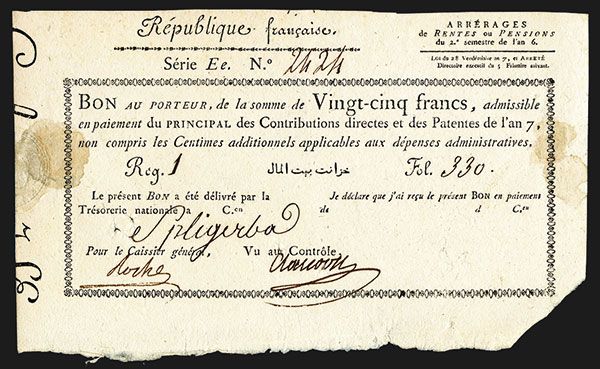 République française.
ARRÉRAGES
de RENTES ou PENSIONS
du 2.e semestre de l'an 6.
Loi du 28 Vendémiaire an 7, et ARRÊTÉ
Directoire exécutif du 3 Frimaire suivant.
Série Ee. N.° 2424
BON AU PORTEUR, de la somme de Vingt-cinq francs, admissible
en paiement du PRINCIPAL des Contributions directes et des Patentes de l'an 7,
non compris les Centimes additionnels applicables aux dépenses administratives.
Reg. 1 خزانت بيت المال Fol. 330.
Le présent BON a été délivré par la
Trésorerie nationale à C.en
Je déclare que j'ai reçu le présent BON en paiement
de d C.en
Spligerba
Pour le Caissier général, Vu au Contrôle,